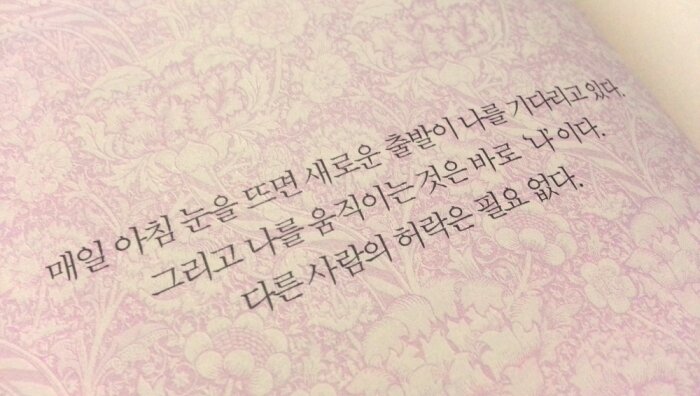 매일 아침 눈을 뜨면 새로운 출발이 나를 기다리고 있다.
그리고 나를 움직이는 것은 바로 '나'이다.
다른 사람의 허락은 필요 없다.